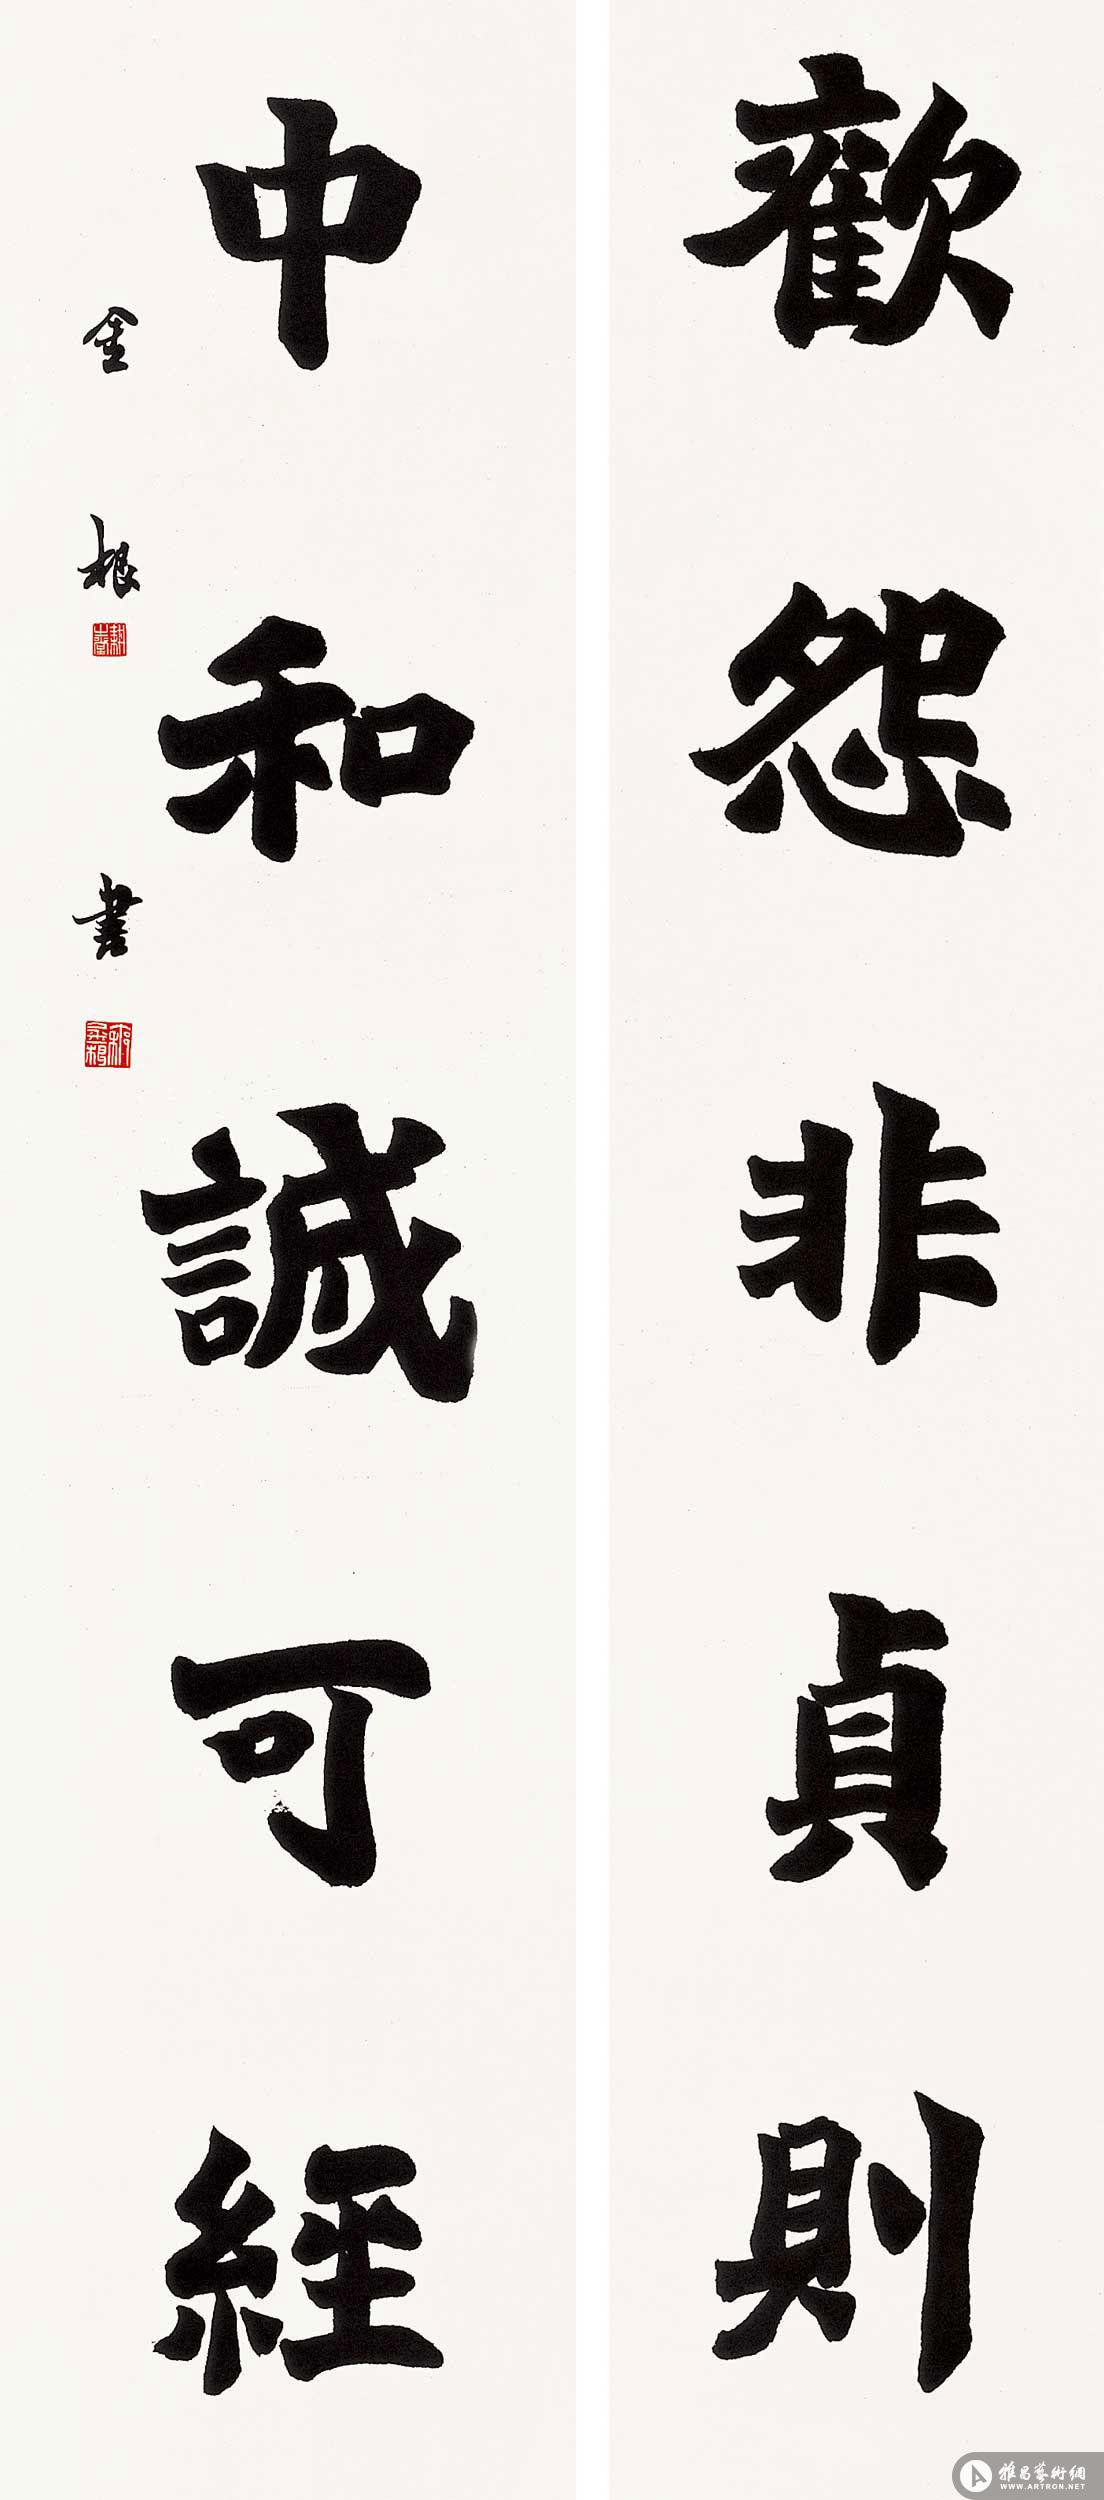 歡怨非貞則
中和誠可經
金根書
雅昌藝術網
WWW.ARTRON.NET